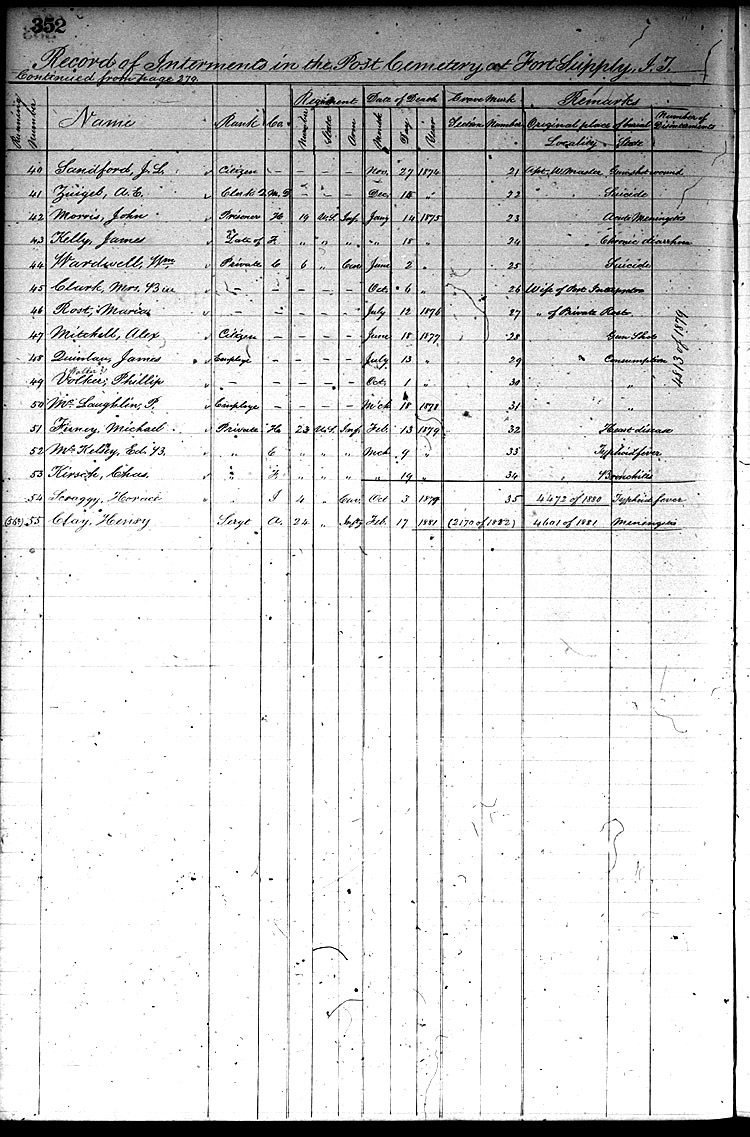 352
Record of Interments in the Post Cemetery at Fort Supply, I. T.
Continued from page 279.
Regiment Date of Death Grave Mark Remarks
Running Number Name Rank Co. Number State Arm Month Day Year Section Number Original place of burial Number of Disinterments
Locality State
40 Sandford, J. L. " Citizen – – – – Nov. 27 1874 21 Gunshot wound
41 A. C. " Clerk Q. M. D – – – Dec. 15 " 22 " " Suicide
42 Morris, John " Prisoner H 19 U.S. Inf. Jany 14 1875 23 Acute Meninges
43 Kelly, James " Late of F. " " " " 15 " 24 " Chronic diarrhoea
44 Wardwell, Wm " Private C 6 " Cav. June 2 " 25 Suicide
45 Clark, Mrs. " – – – – – Oct. 6 " 26 Wife of Post Interpreter
46 Rost, Maria " – – – – – July 12 1876 27 " of Private Rost
47 Mitchell, Alex " Citizen – – – – June 18 1877 28 " Gun Shot
48 Quinlan, James " Employe – – – – July 13 " 29 " Consumption
49 Volker, Phillip " – – – – – Oct. 1 " 30 "
50 McLaughlin, P. " Employe – – – – Mch 18 1878 31 "
51 Finney, Michael " Private H. 23 U.S. Inf. Feb. 13 1879 32 " Heart disease
52 McKelsey, Ed. B. " " C " " " Mch 9 " 33 Typhoid fever
53 Kirsch, Chas. " " F. " " " " 19 " 34 " Bronchitis
4813 of 1879
54 Scraggy, Horace " " I 4 " Cav. Oct 3 1879 35 4472 of 1880 Typhoid fever
55 Clay, Henry Sergt A. 24 " Infty Feb. 17 1881 (2170 of 1882) 4601 of 1881 Meninges